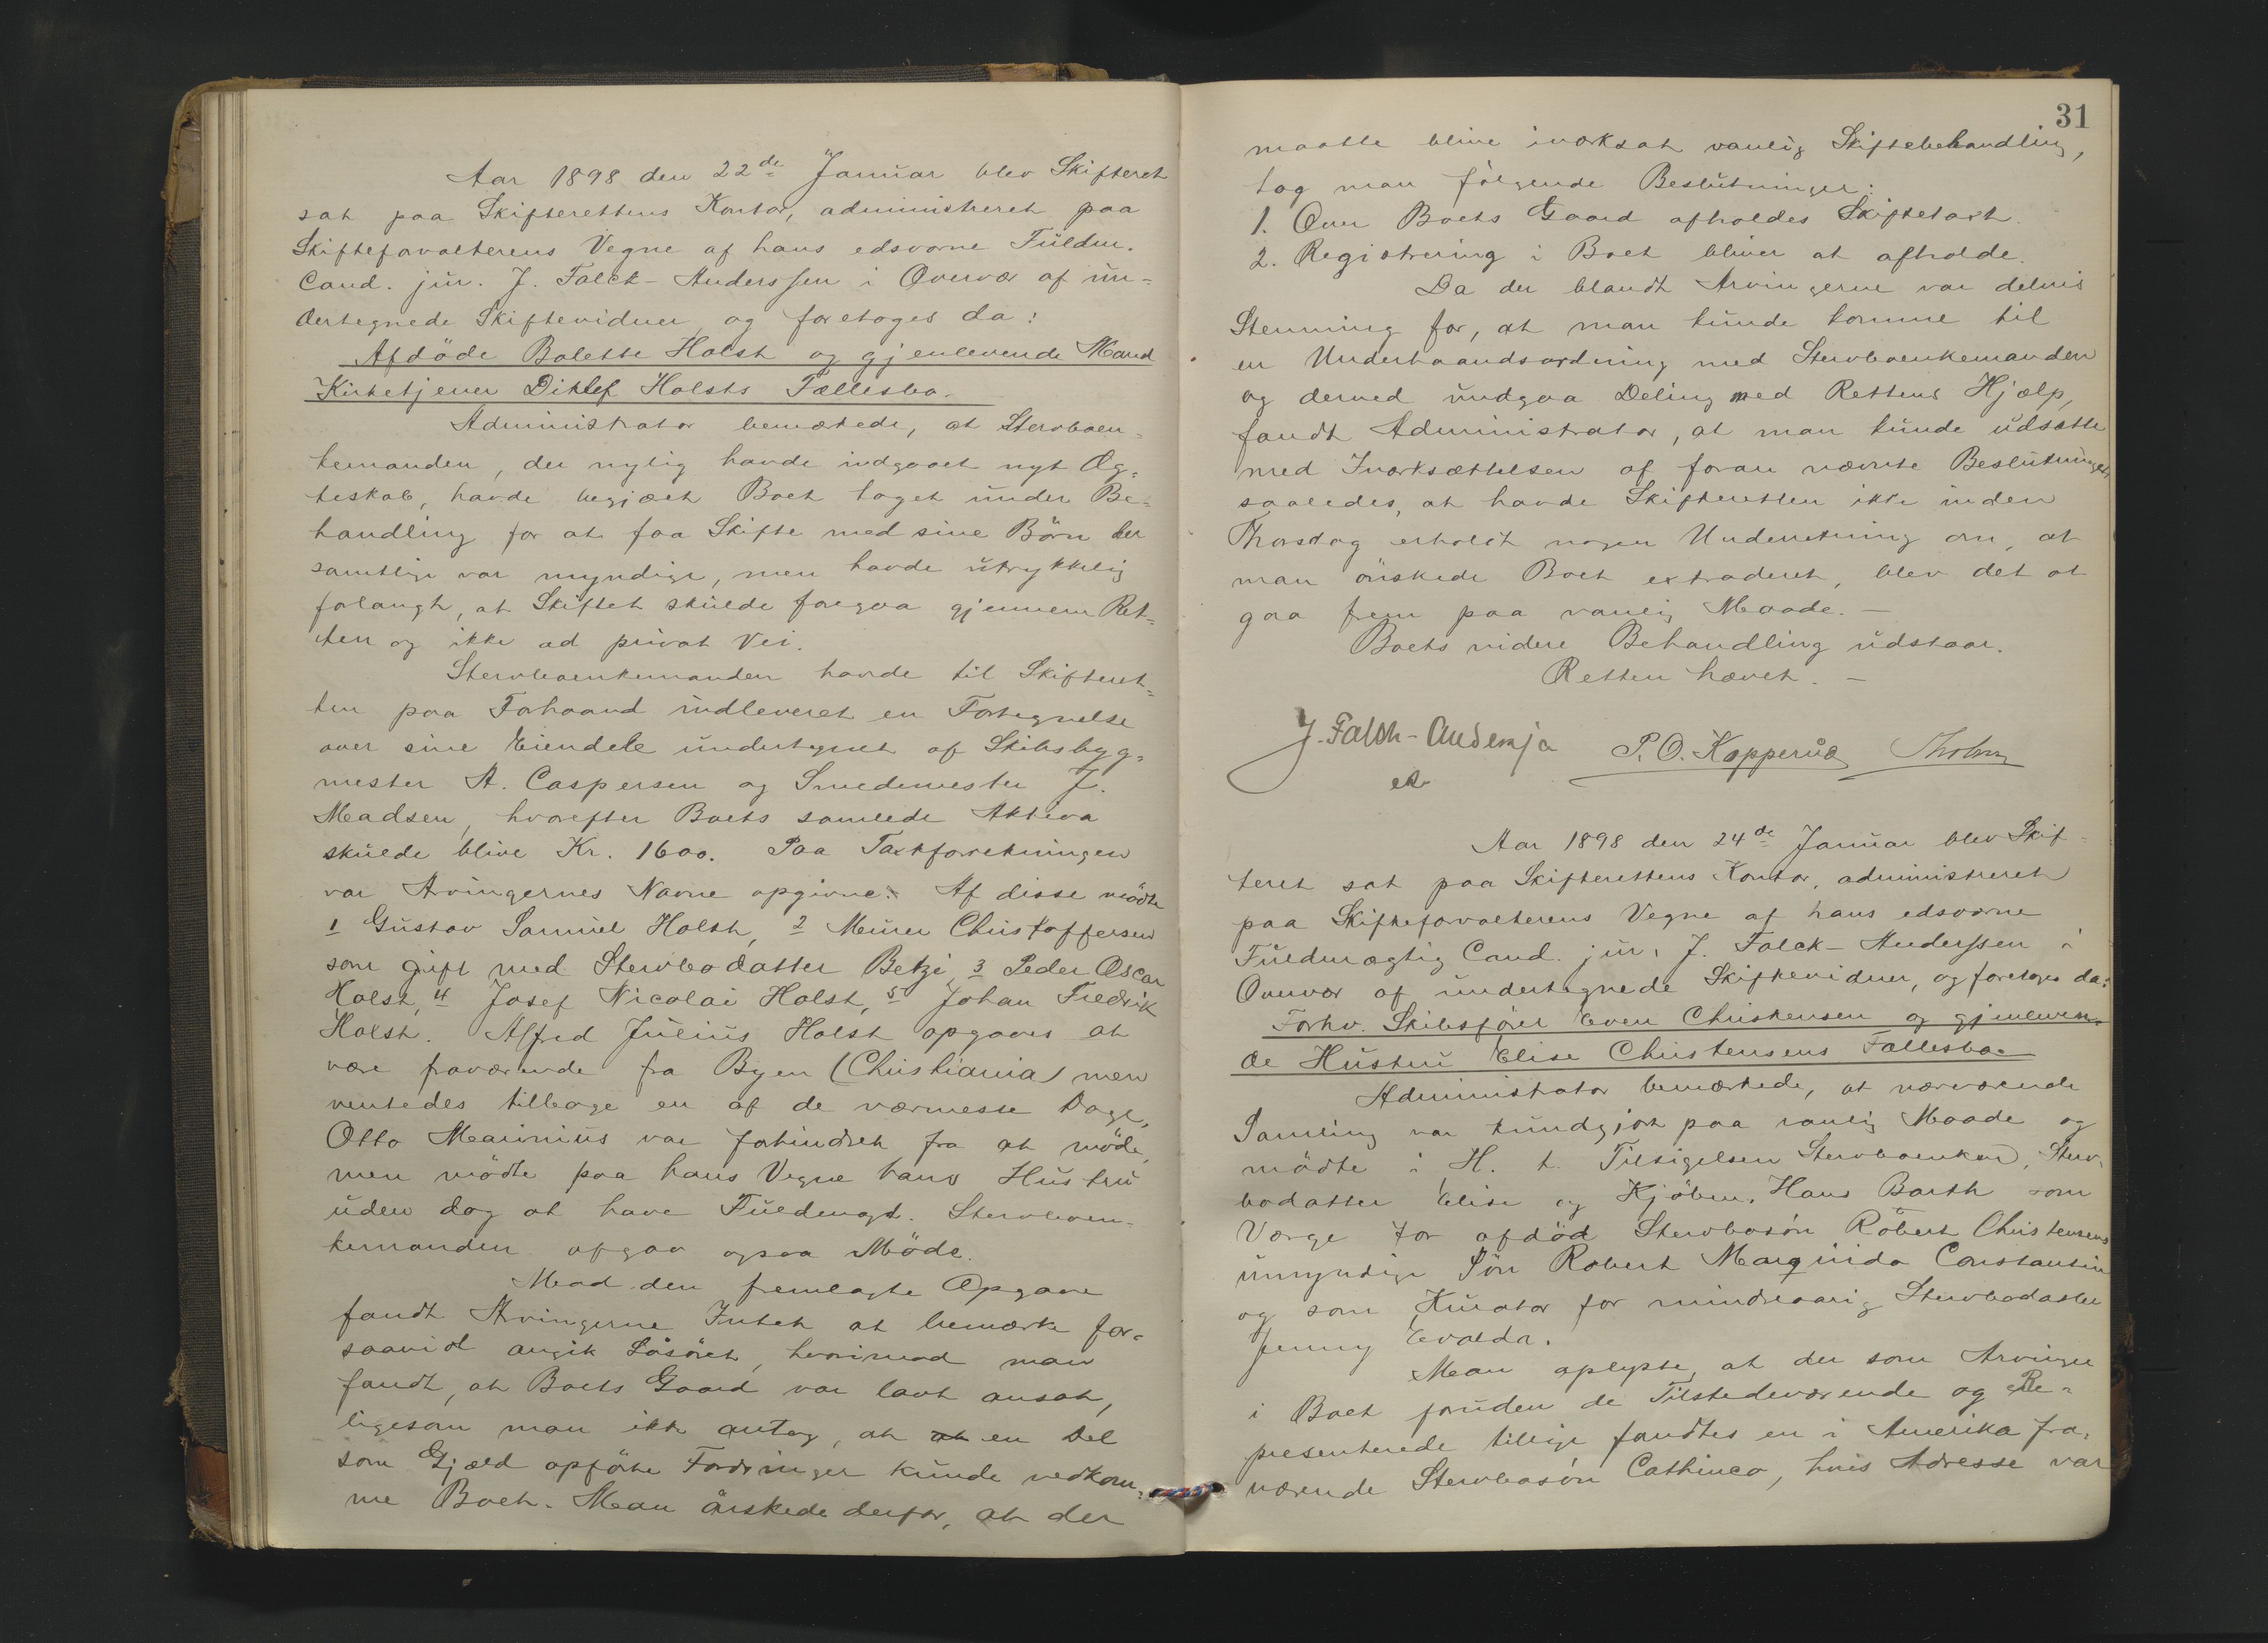 Aar 1898 den 22de Januar blev Skifteret
sat paa Skifterettens Kontor, administreret paa
Skifteforvalterens Vegne af hans edsvorne Fuldm.
Cand. jur. J. Falck-Anderssen i Overvær af un-
dertegnede Skiftevidner og foretoges da:
Afdöde Bolette Holst og gjenlevende Mand
Kirketjener Ditlef Holsts Fællesbo.
Administrator bemærkede, at Stervboen-
kemanden, der nylig havde indgaaet nyt Æg-
teskab, havde begjært Boet taget under Be-
handling for at faa Skifte med sine Börn der
samtlige var myndige, men havde utrykkelig
forlangt, at Skiftet skulde foregaa gjennem Ret-
ten og ikke ad privat Vei.
Stervboenkemanden havde til Skifteret-
ten paa Forhaand indleveret en Fortegnelse
over sine Eiendele undertegnet af Skibsbyg-
mester A. Caspersen og Smedemester J.
Madsen, hvorefter Boets samlede Aktiva
skulde blive Kr. 1600. Paa Taxtforretningen
var Arvingernes Navne opgivne. Af disse mödte
1 Gustav Samuel Holst, 2 Murer Christoffersen
som gift med Stervbodatter Betzi, 3 Peder Oscar
Holst, 4 Josef Nicolai Holst, 5 Johan Fredrik
Holst. Alfred Julius Holst opgaves at
være fraværende fra Byen (Christiania) men
ventedes tilbage en af de nærmeste Dage,
Otto Marinius var forhindret fra at möde,
men mödte paa hans Vegne hans Hustru
uden dog at have Fuldmagt. Stervboen-
kemanden afgav ogsaa Möde.
Mod den fremlagte Opgave
fandt Arvingerne Intet at bemærke for-
saavidt angik Lösöret, hvorimod man
fandt, at Boets Gaard var lavt ansat,
ligesom man ikke antog, at at en Del
som Gjæld opförte Fordringer kunde vedkom-
me Boet. Man önskede derfor, at der
31
maatte blive iværksat vanlig Skiftebehandling,
tog man fölgende Beslutninger:
1. Over Boets Gaard afholdes Skiftetaxt.
2. Registrering i Boet bliver at afholde.
Da der blandt Arvingerne var delvis
Stemning for, at man kunde komme til
en Underhaandsordning med Stervboenkemanden
og derved undgaa Deling med Rettens Hjælp,
fandt Administrator, at man kunde udsætte
med Iværksættelsen af foran nævnte Beslutninger,
saaledes, at havde Skifteretten ikke inden
Thorsdag erholdt nogen Underretning om, at
man önskede Boet extraderet, blev det at
gaa frem paa vanlig Maade. —
Boets videre Behandling udstaar.
Retten hævet. —
J. Falck-Anderssen P. O. Kopperud
Aar 1898 den 24de Januar blev Skif-
teret sat paa Skifterettens Kontor, administreret
paa Skifteforvalterens Vegne af hans edsvorne
Fuldmægtig Cand. jur. J. Falck-Anderssen i
Overvær af undertegnede Skiftevidner, og foretoges da:
Forhv. Skibsförer Even Christensen og gjenleven-
de Hustru Elise Christensens Fællesbo.
Administrator bemærkede, at nærværende
Samling var kundgjort paa vanlig Maade og
mödte i H. t. Tilsigelsen Stervboenken, Sterv-
bodatter Elise og Kjöbm. Hans Barth som
Værge for afdöd Stervbosön Robert Christensens
umyndige Sön Robert Marquida Constantin
og som Kurator for mindreaarig Stervbodatter
Jenny Evalda.
Man oplyste, at der som Arvinger
i Boet foruden de Tilstedeværende og Re-
presenterede tillige fandtes en i Amerika fra-
værende Stervbosön Cathinco, hvis Adresse var